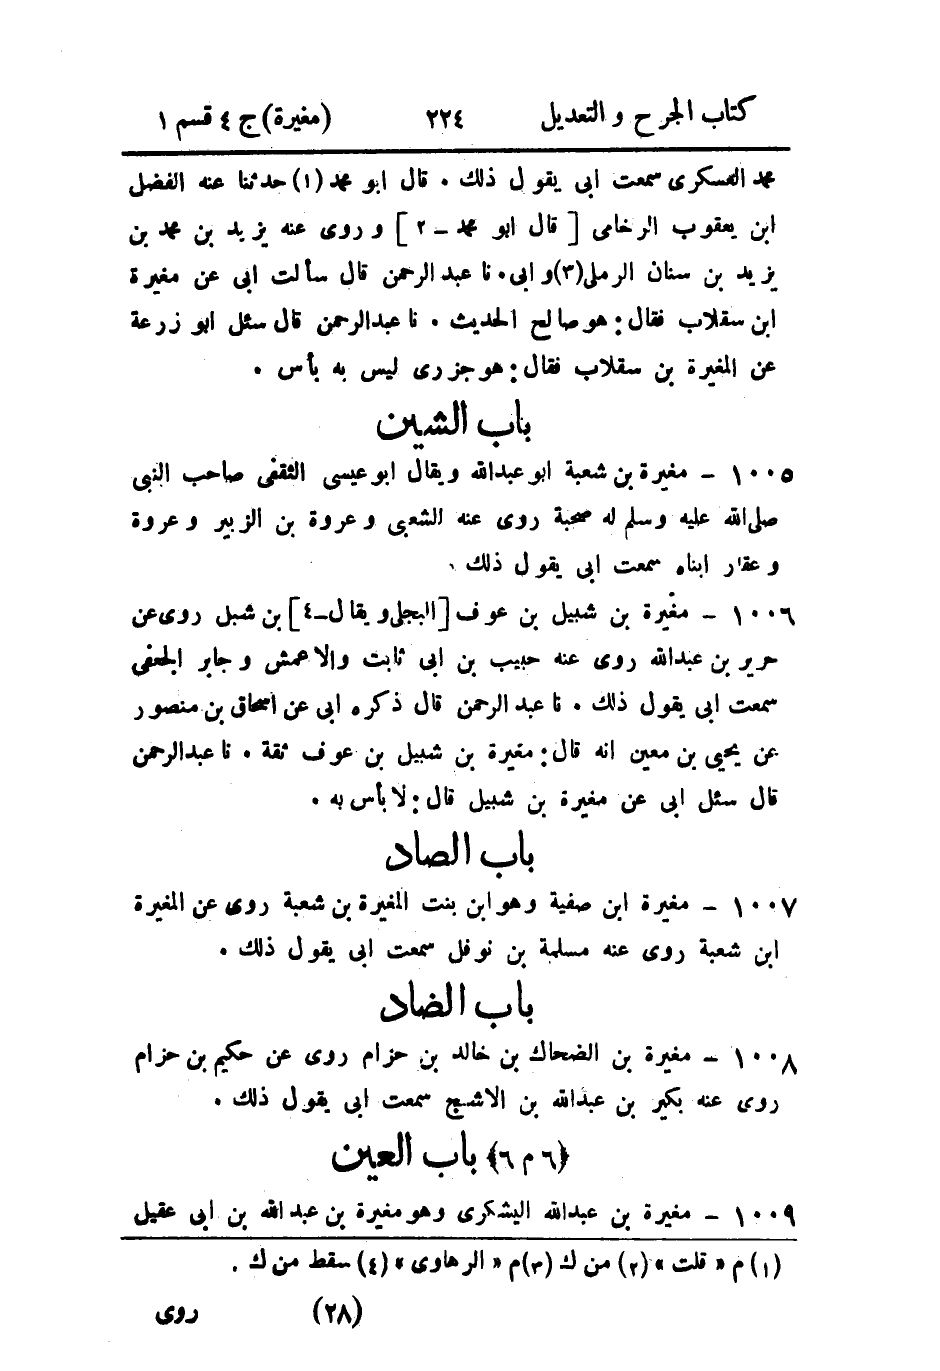 كتاب الجرح و التعديل ٢٢٤ (مغيرة) ج ٤ قسم ١
محمد العسكرى سمعت ابى يقول ذلك . قال ابو محمد (١) حدثنا عنه الفضل
ابن يعقوب الرخامى [ قال ابو محمد - ٢ ] و روى عنه يزيد بن محمد بن
يزيد بن سنان الرملى (٣) و ابى . نا عبد الرحمن قال سألت ابى عن مغيرة
ابن سقلاب فقال : هو صالح الحديث . نا عبدالرحمن قال سئل ابو زرعة
عن المغيرة بن سقلاب فقال : هو جزرى ليس به بأس .
باب الشين
١٠٠٥ - مغيرة بن شعبة ابو عبدالله ويقال ابو عيسى الثقفى صاحب النبى
صلى الله عليه وسلم له صحبة روى عنه الشعبى و عروة بن الزبير و عروة
و عقار ابناه سمعت ابى يقول ذلك .
١٠٠٦ - مغيرة بن شبيل بن عوف [ البجلى و يقال - ٤ ] بن شبل روى عن
حرير بن عبدالله روى عنه حبيب بن ابى ثابت والاعمش و جابر الجعفى
سمعت ابى يقول ذلك . نا عبد الرحمن قال ذكره ابى عن اسحاق بن منصور
عن يحيى بن معين انه قال : مغيرة بن شبيل بن عوف ثقة . نا عبدالرحمن
قال سئل ابى عن مغيرة بن شبيل قال : لا بأس به .
باب الصاد
١٠٠٧ - مغيرة ابن صفية وهو ابن بنت المغيرة بن شعبة روى عن المغيرة
ابن شعبة روى عنه مسلمة بن نوفل سمعت ابى يقول ذلك .
باب الضاد
١٠٠٨ - مغيرة بن الضحاك بن خالد بن حزام روى عن حكيم بن حزام
روى عنه بكير بن عبدالله بن الاشج سمعت ابى يقول ذلك .
﴿٦ م ٦﴾ باب العين
١٠٠٩ - مغيرة بن عبدالله اليشكرى وهو مغيرة بن عبد الله بن ابى عقيل
(١) م « قلت » (٢) من ك (٣) م « الرهاوى » (٤) سقط من ك .
(٢٨) روى